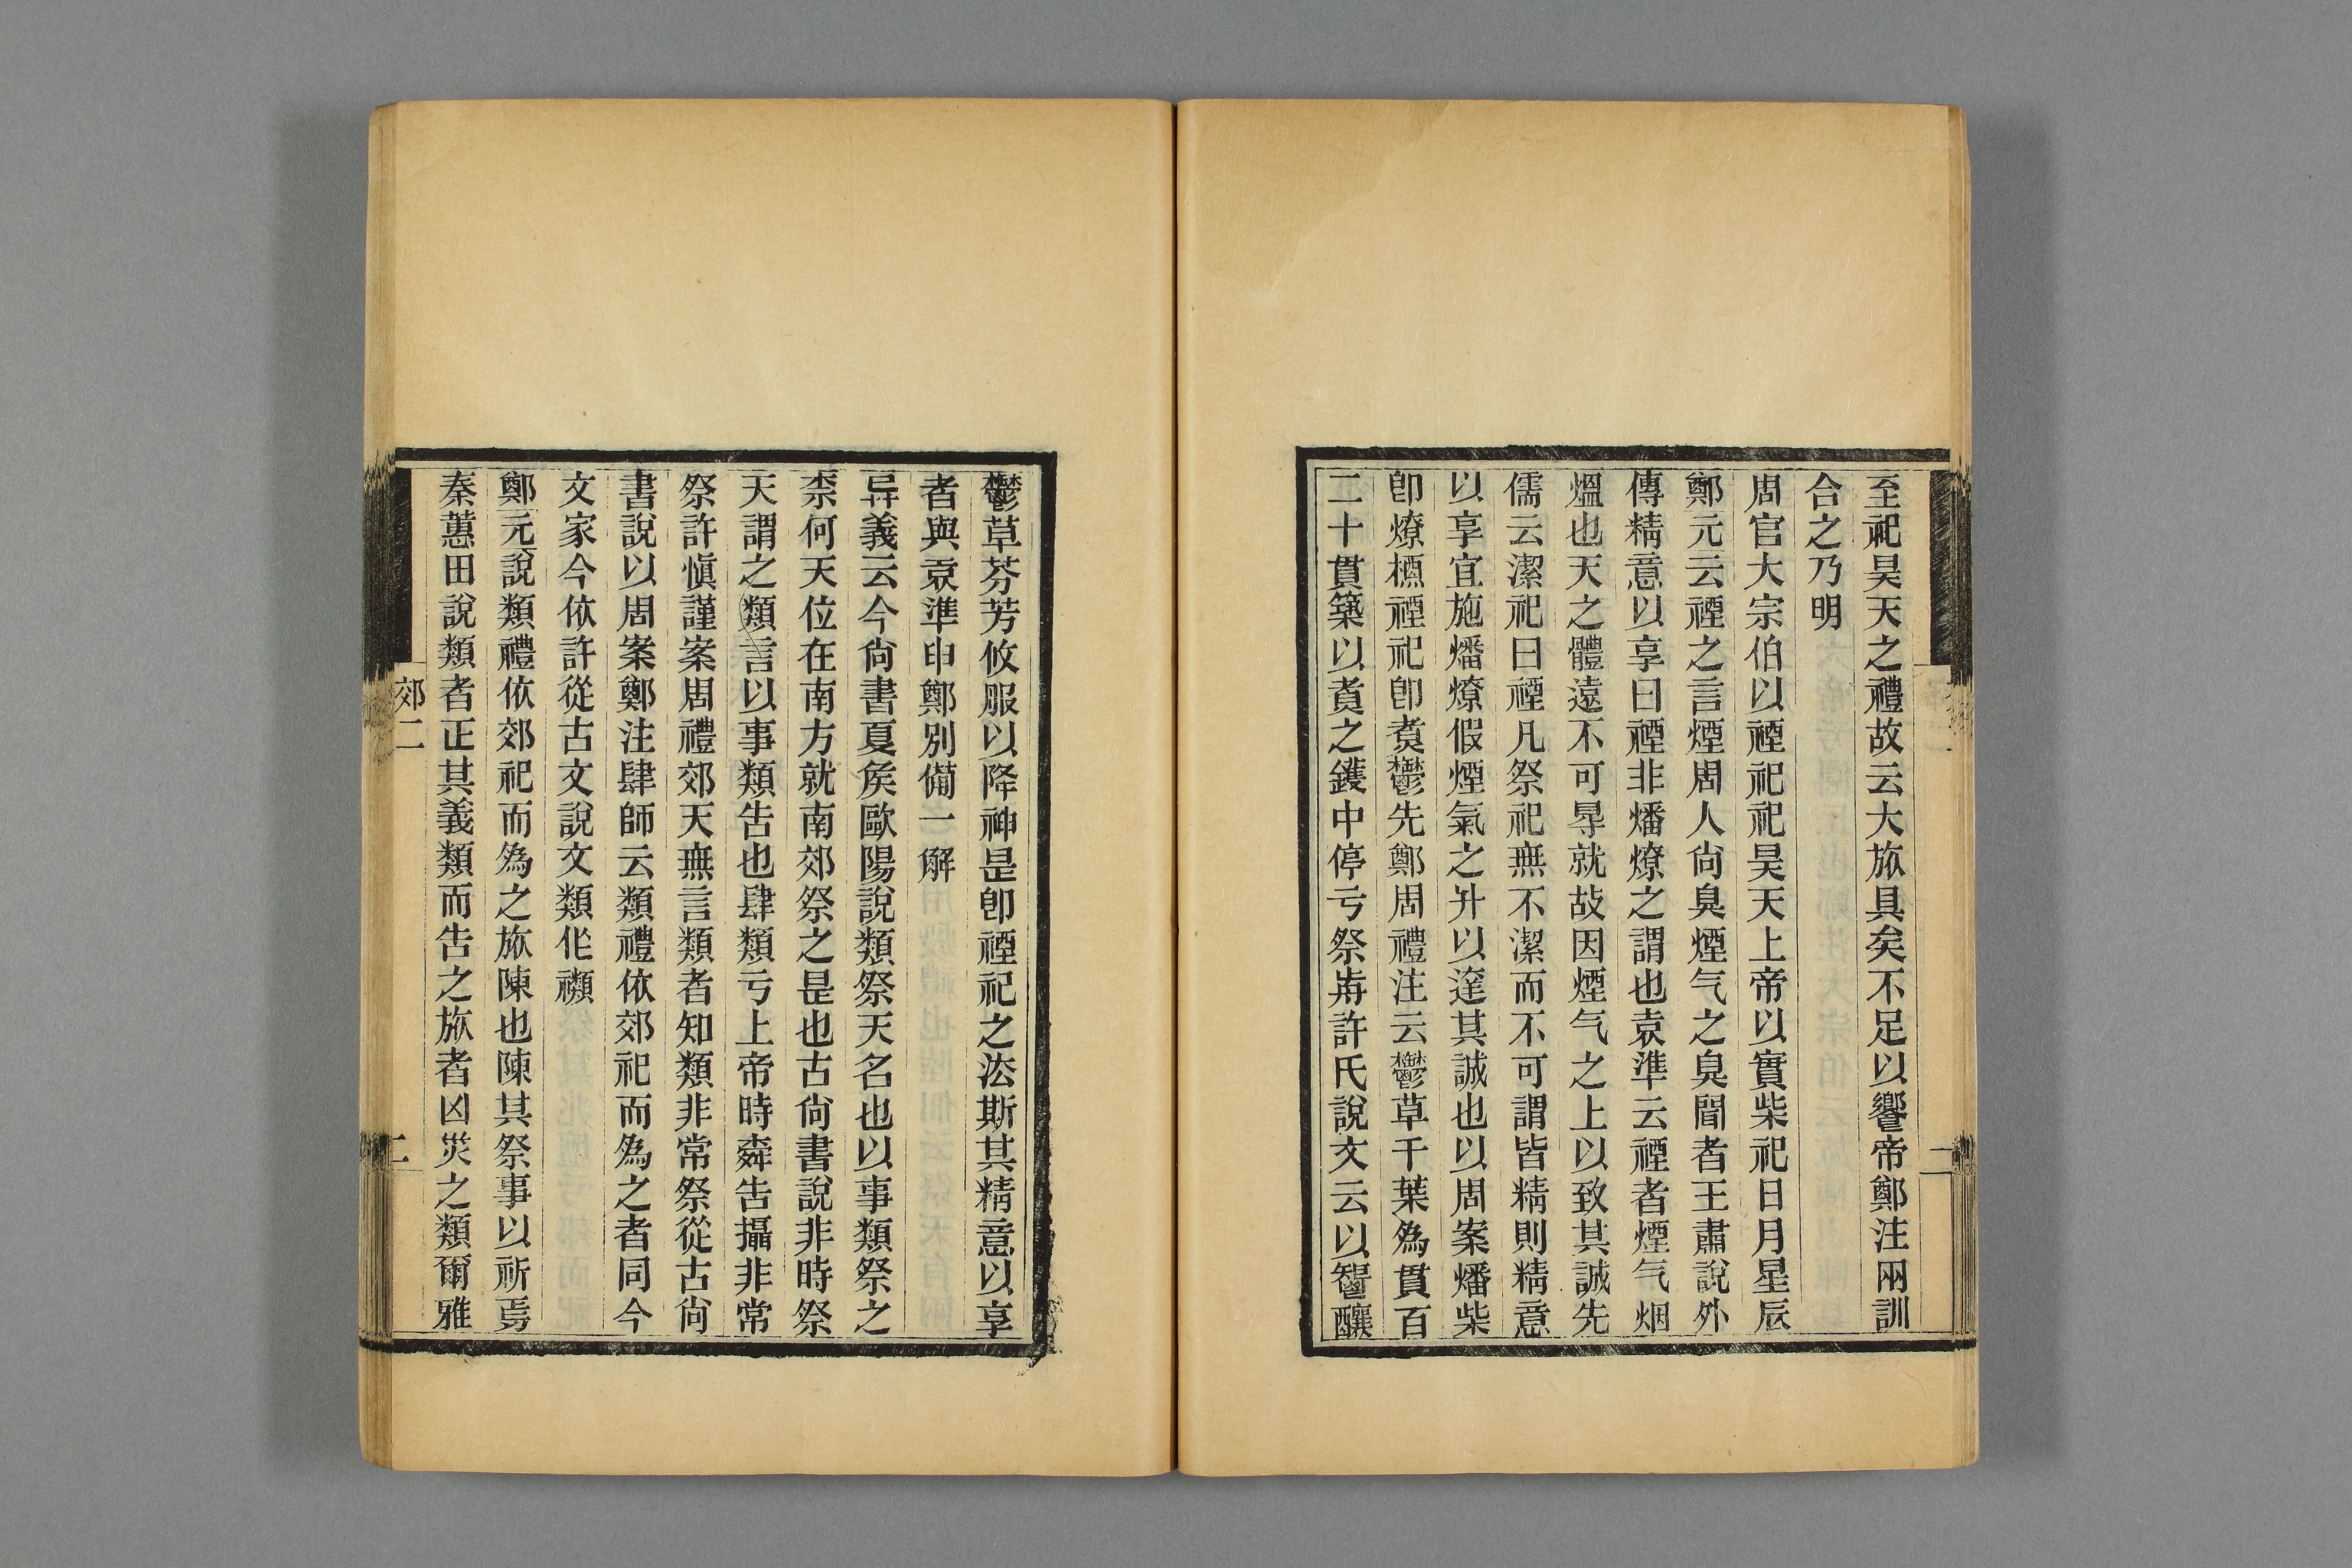 至祀昊天之禮故云大旅具矣不足以饗帝鄭注兩訓
合之乃明
周官大宗伯以禋祀祀昊天上帝以實柴祀日月星辰
鄭元云禋之言煙周人尙臭煙气之臭聞者王肅說外
傳精意以享曰禋非燔燎之謂也袁準云禋者煙气烟
熅也天之體遠不可㝵就故因煙气之上以致其誠先
儒云潔祀曰禋凡祭祀無不潔而不可謂皆精則精意
以享宜施燔燎假煙氣之升以達其誠也以周案燔柴
卽燎槱禋祀卽煑鬱先鄭周禮注云鬱草千葉為貫百
二十貫築以煑之鑊中停亏祭歬許氏說文云以鬯釀
鬱草芬芳攸服以降神昰卽禋祀之㳒斯其精意以享
者與袁準申鄭別備一解
异義云今尙書夏矦歐陽說類祭天名也以事類祭之
柰何天位在南方就南郊祭之昰也古尙書說非時祭
天謂之類言以事類告也肆類亏上帝時舜告攝非常
祭許愼謹案周禮郊天無言類者知類非常祭從古尙
書說以周案鄭注肆師云類禮依郊祀而為之者同今
文家今依許從古文說文類作禷
鄭元說類禮依郊祀而為之旅陳也陳其祭事以祈焉
秦蕙田說類者正其義類而告之旅者凶災之類爾雅
郊二
二
二